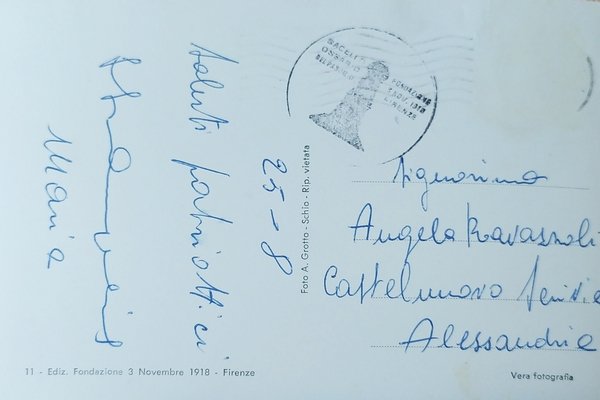 Saluti patriottici
Maria
25-8
SACELLO
OSSARIO
DEL PASUBIO
FONDAZIONE
3 NOV. 1918
FIRENZE
Signorina
Angela Ravazzoli
Castelnuovo Scrivia
Alessandria
Foto A. Grotto - Schio - Rip. vietata
11 - Ediz. Fondazione 3 Novembre 1918 - Firenze
Vera fotografia